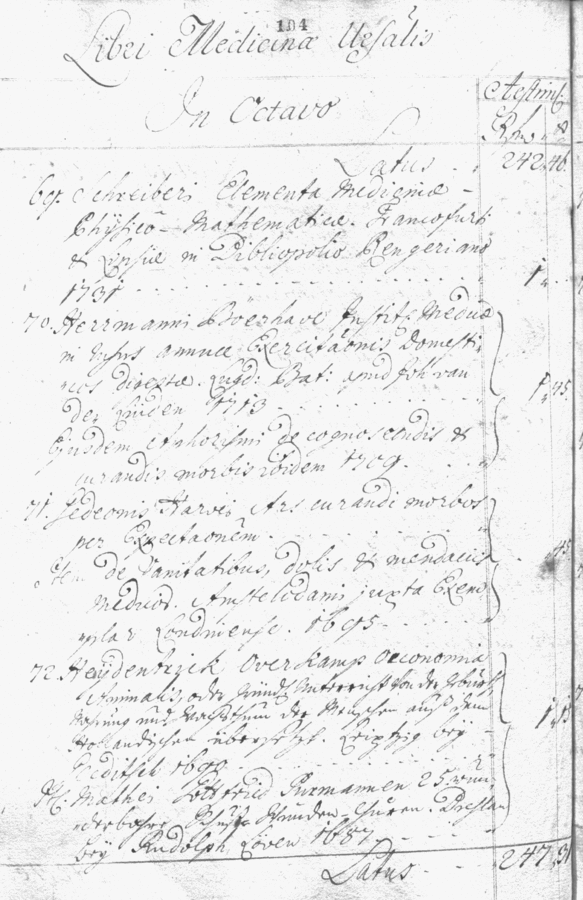 104
Libri Medicinæ Uesalis
In Octavo
Æstim:
Rh.
Latus . . 242. 46.
69. Schreiberi Elementa Medicinæ -
Physico - Mathematicæ. Francofurti
& Lipsiæ in Bibliopolio Rengeriano
1731 . . . . . . 1 "
70. Herrmanni Böerhave Instit: Medicæ
in Usus annuæ Exercitaōnis Domesti-
cos Lugd: Bat: apud Joh van
der Linden 1713 . . . . 1. 45.
Ejusdem Aphorismi de cognoscendis &
curandis morbis ibidem 1709 . . .
71. Gedeonis Harvei Ars curandi morbos
per Expectaōnem . . . . .
Item de Vanitatibus, dolis & mendaciis
Medicor. Amstelodami juxta Exem- 45.
plar Londinense. 1695 - - -
72. Heydentryck Overkamp Oeconomia
Animalis, oder Gründl. Unterricht von der Geburth,
Nahrung und Wachsthum der Menschen auß dem
Holländischen übersetzt. Leipzig bey -
1690 - - - -
It: Mathei Gottfried Purmannen 25 wun-
derbahre Schuß Wunden Curen. Breslau
bey Rudolph 1687 - - -
Latus - - 247. 31